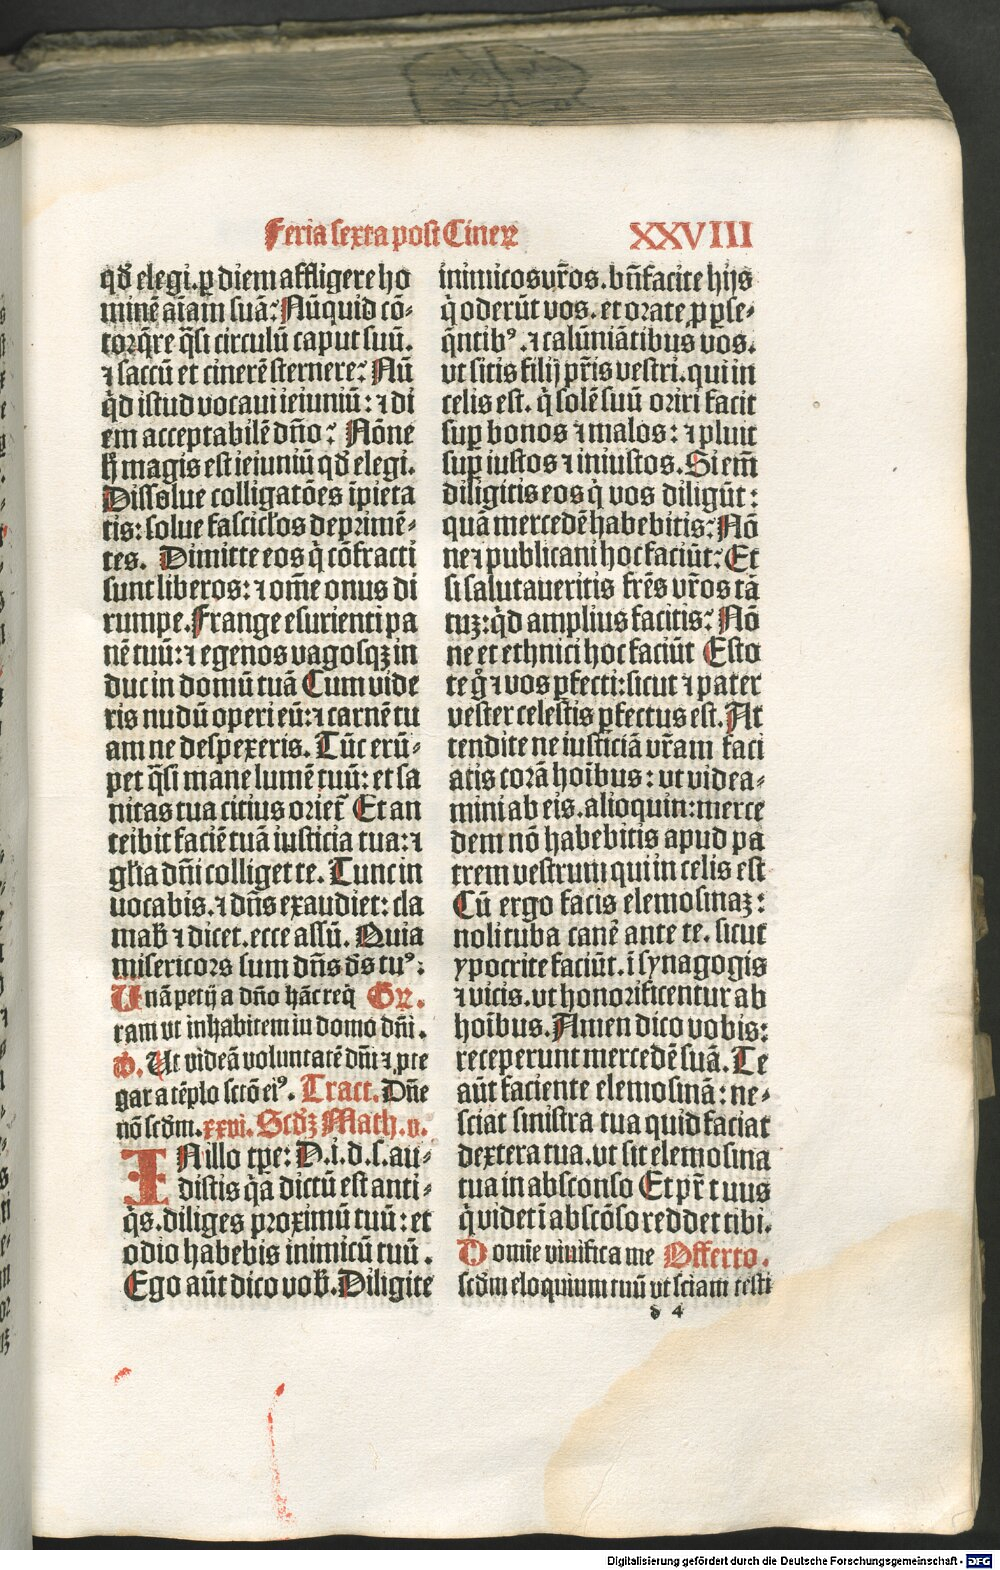 Feria sexta post Cineꝝ XXVIII
qd̕ elegi. ꝑ diem affligere ho
minē aīam suā? Nūquid cō-
torq̄re q̄si circulū caput suū.
⁊ saccū et cinerē sternere? Nū
qd̄ istud vocaui ieiuniū: ⁊ di
em acceptabilē dño? Nōne
h̄ magis est ieiuniū qd̕ elegi.
Dissolue colligatōes īpieta
tis: solue fascicl̕os deprimē-
tes. Dimitte eos q̄ cōfracti
sunt liberos: ⁊ om̄e onus di
rumpe. Frange esurienti pa
nē tuū: ⁊ egenos vagosqꝫ in
duc in domū tuā Cum vide
ris nudū operi eū: ⁊ carnē tu
am ne despexeris. Tūc erū-
pet q̄si mane lumē tuū: et sa
nitas tua citius oriet̄ Et an
teibit faciē tuā iusticia tua: ⁊
gl̕ia dñi colliget te. Tunc in
uocabis. ⁊ dñs exaudiet: cla
mab̄ ⁊ dicet. ecce assū. Quia
misericors sum dñs d̕s tuꝰ:
Unā petij a dño hāc req̄ Gꝝ.
ram vt inhabitem in domo dñi.
℣. Ut videā voluntatē dñi ⁊ ꝓte
gar a tēplo sctō eiꝰ. Tract. Dñe
nō scd̕m. xxvi. Scd̕ꝫ Math. v.
IN illo tꝑe: D. i. d. s. au-
distis q̄a dictū est anti-
q̄s. diliges proximū tuū: et
odio habebis inimicū tuū.
Ego aūt dico vob̄. Diligite
inimicos vr̄os. bn̄facite hijs
q̄ oderūt vos. et orate ꝓ ꝑse-
q̄ntibꝰ. ⁊ calūniātibus vos.
vt sitis filij pr̄is vestri. qui in
celis est. q̄ solē suū oriri facit
suꝑ bonos ⁊ malos: ⁊ pluit
suꝑ iustos ⁊ iniustos. Si em̄
diligitis eos q̄ vos diligūt:
quā mercedē habebitis? Nō
ne ⁊ publicani hoc faciūt? Et
si salutaueritis fr̄es vr̄os tā
tuꝫ: qd̄ amplius facitis? Nō
ne et ethnici hoc faciūt Esto
te gͦ ⁊ vos ꝑfecti: sicut ⁊ pater
vester celestis ꝑfectus est. At
tendite ne iusticiā vr̄am faci
atis corā hoībus: vt videa-
mini ab eis. alioquin: merce
dem nō habebitis apud pa
trem vestrum qui in celis est
Cū ergo facis elemosinaꝫ:
noli tuba canē ante te. sicut
ypocrite faciūt. ī synagogis
⁊ vicis. vt honorificentur ab
hoībus. Amen dico vobis:
receperunt mercedē suā. Te
aūt faciente elemosinā: ne-
sciat sinistra tua quid faciat
dextera tua. vt sit elemosina
tua in absconso Et pr̄ tuus
q̄ videt ī abscōso reddet tibi.
Domīe viuifica me Offerto.
scd̕m eloquium tuū vt sciam testi
d 4
Digitalisierung gefördert durch die Deutsche Forschungsgemeinschaft - DFG